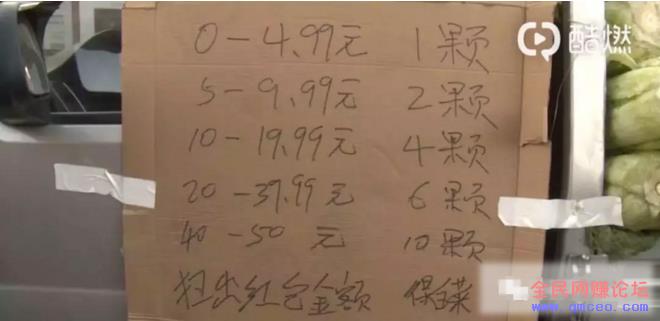 酷燃
0-4.99元 1颗
5-9.99元 2颗
10-19.99元 4颗
20-39.99元 6颗
40-50 元 10颗
扫出红包金额 白菜
全民网赚论坛
www.qmceo.com